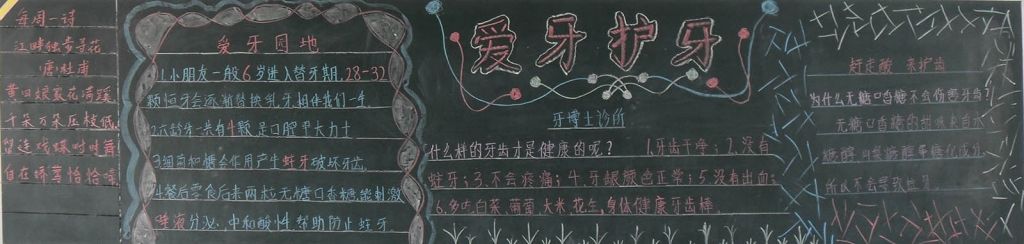 每周一诗
江畔独步寻花
唐·杜甫
黄四娘家花满蹊
千朵万朵压枝低
留连戏蝶时时舞
自在娇莺恰恰啼
爱牙园地
1.小朋友一般6岁进入替牙期,28-32
颗恒牙会逐渐替换乳牙,相伴我们一生
2.六龄牙一共有4颗,是口腔里大力士
3.细菌和糖会作用产生蛀牙破坏牙齿
4.餐后零食后来两粒无糖口香糖,能刺激
唾液分泌、中和酸性、帮助防止蛀牙
爱牙护牙
牙博士诊所
什么样的牙齿才是健康的呢? 1.牙齿干净;2.没有
蛀牙;3.不会疼痛;4.牙龈颜色正常;5.没有出血;
6.多吃白菜、葡萄、大米、花生,身体健康牙齿棒
赶走酸 来护齿
为什么无糖口香糖不会伤害牙齿?
无糖口香糖的甜味来自木
糖醇
所以不会导致蛀牙